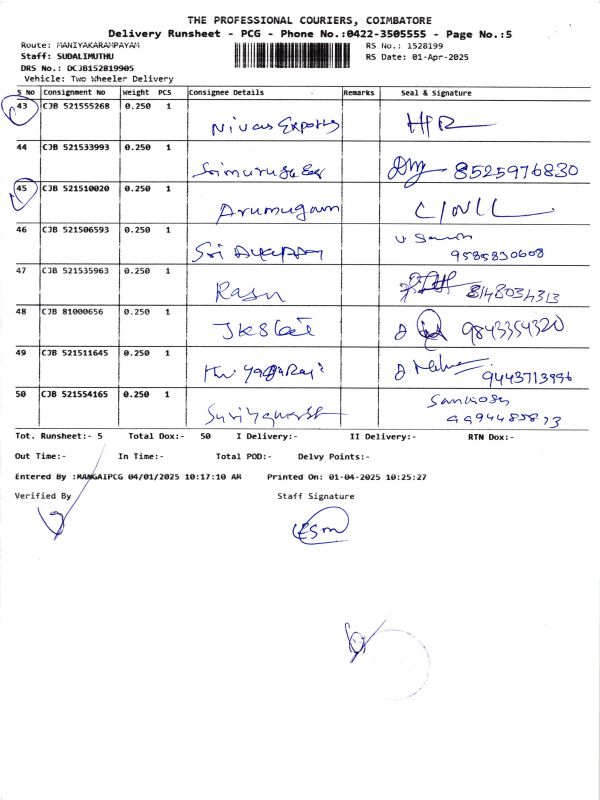 THE PROFESSIONAL COURIERS, COIMBATORE
Delivery Runsheet - PCG - Phone No.:0422-3505555 - Page No.:5
Route: MANIYAKARAMPAYAM RS No.: 1528199
Staff: SUDALIMUTHU RS Date: 01-Apr-2025
DRS No.: DCJB152819905
Vehicle: Two Wheeler Delivery
S No Consignment No Weight PCS Consignee Details Remarks Seal & Signature
43 CJB 521555268 0.250 1
Nivas Exports
44 CJB 521533993 0.250 1
8525976830
45 CJB 521510020 0.250 1
Arumugam
46 CJB 521506593 0.250 1
Sri 9585830608
47 CJB 521535963 0.250 1
Raju 8148034313
48 CJB 81000656 0.250 1
9843354320
49 CJB 521511645 0.250 1
9443713996
50 CJB 521554165 0.250 1
Tot. Runsheet:- 5 Total Dox:- 50 I Delivery:- II Delivery:- RTN Dox:-
Out Time:- In Time:- Total POD:- Delvy Points:-
Entered By :MANGAIPCG 04/01/2025 10:17:10 AM Printed On: 01-04-2025 10:25:27
Verified By Staff Signature